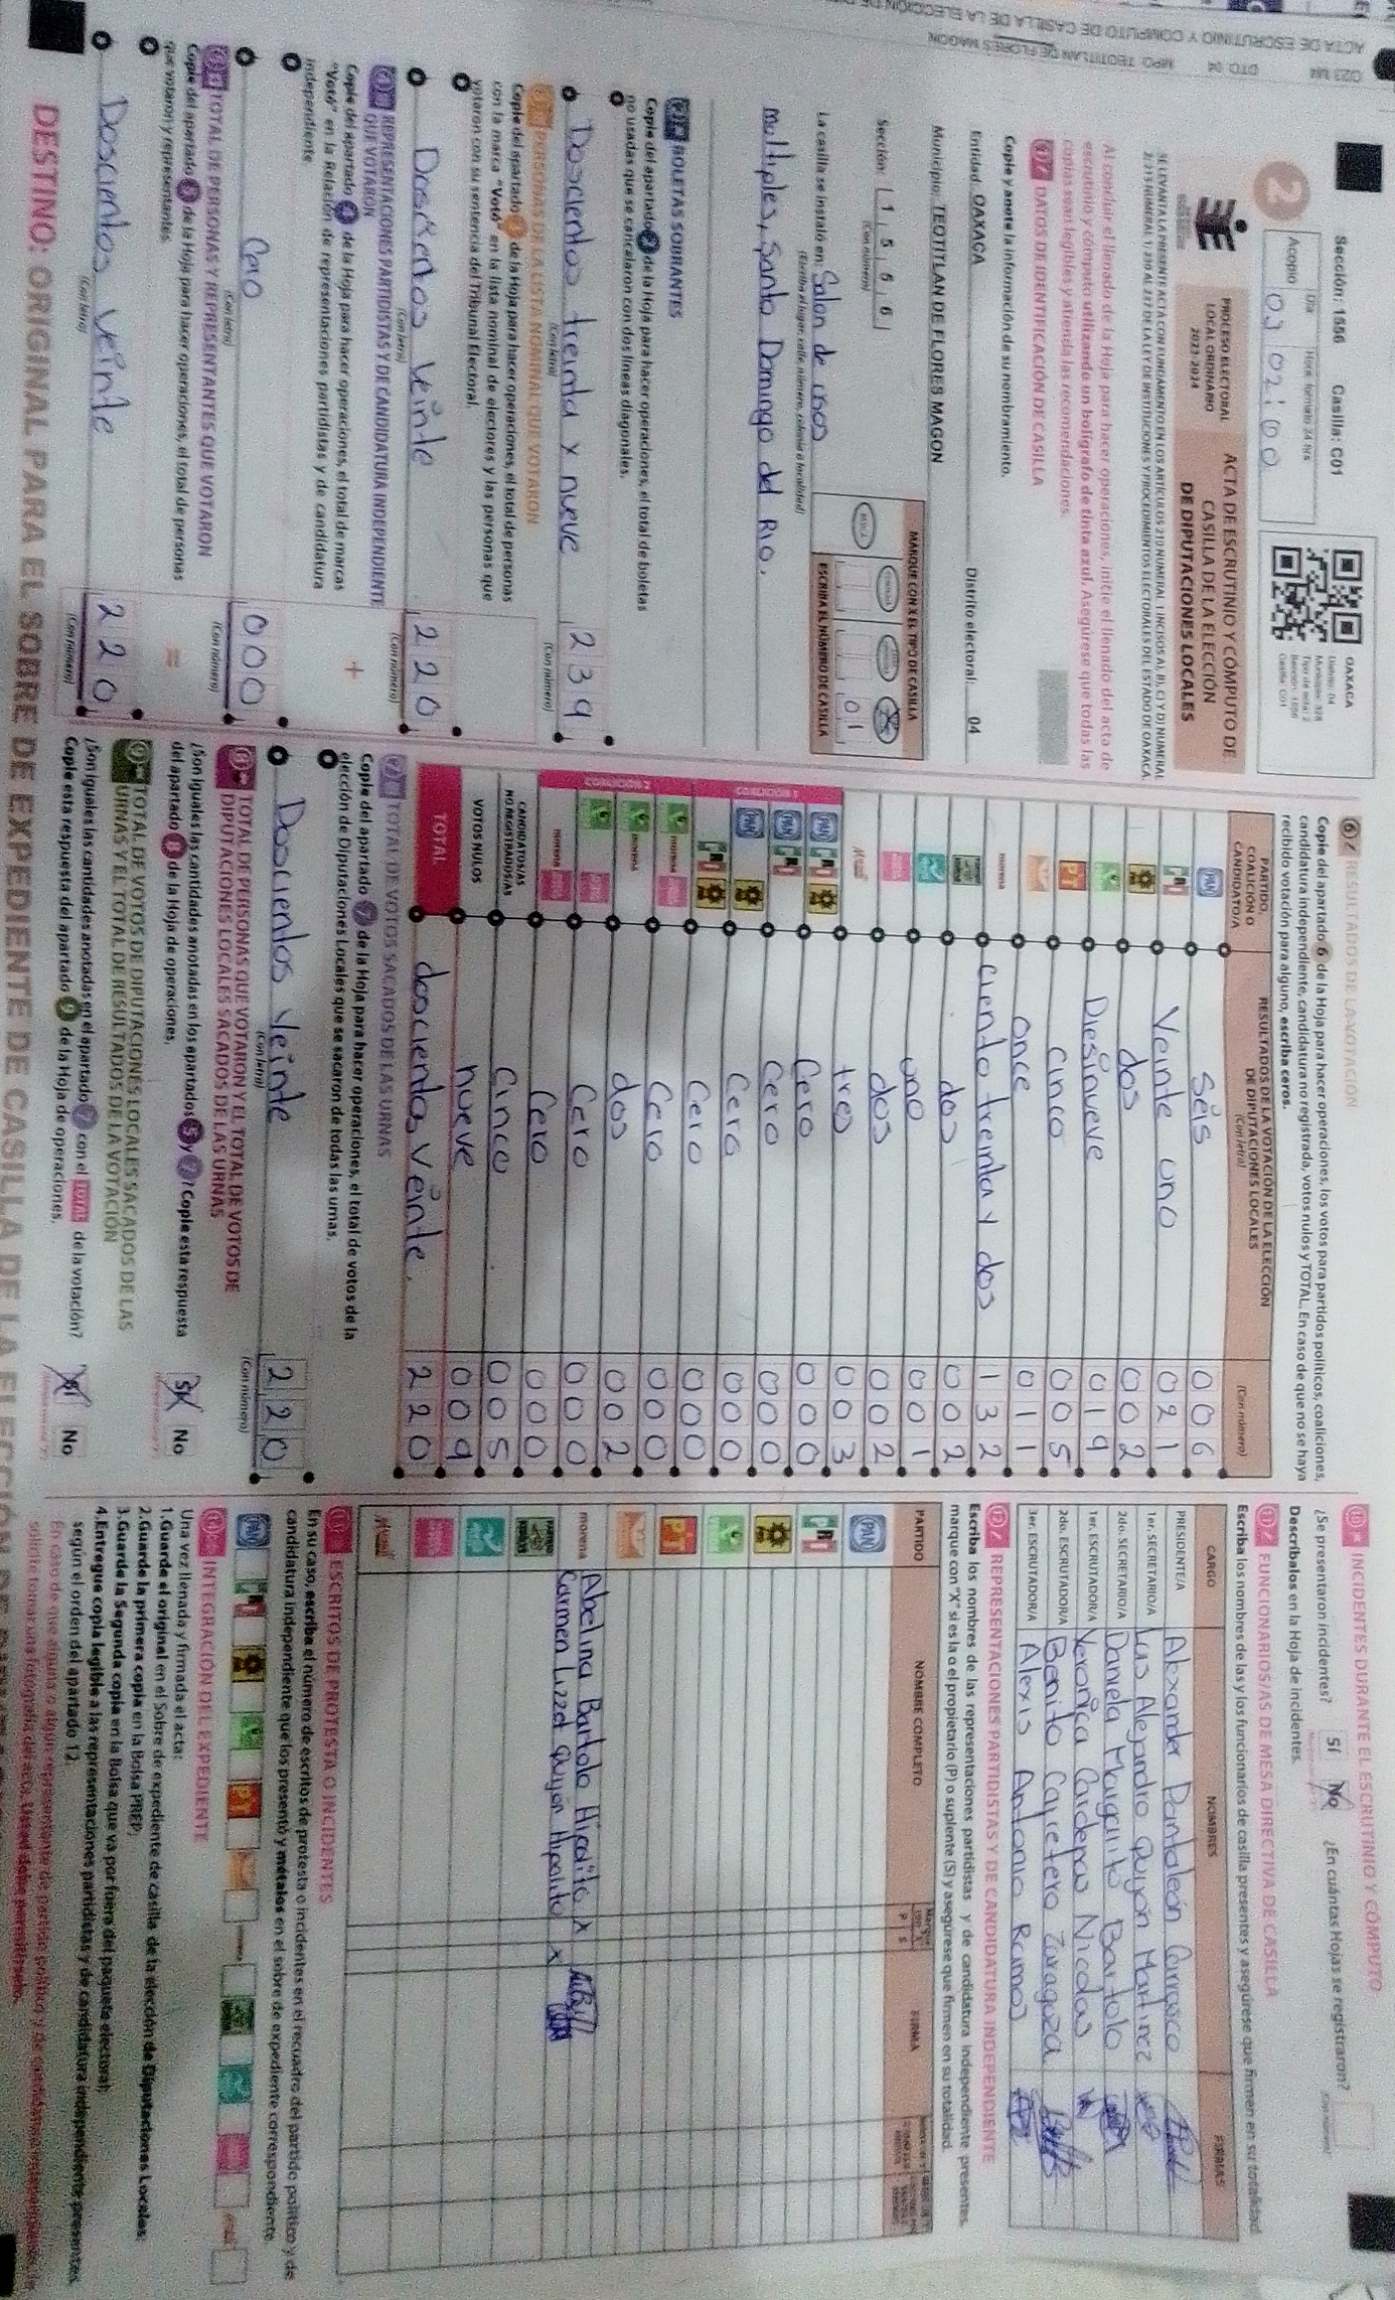 Sección: 1556 Casilla: C01
Día Hora formato 24 hrs
Acopio 03 02:00
2
OAXACA
Distrito: 04
PROCESO ELECTORAL
LOCAL ORDINARIO
2023-2024
ACTA DE ESCRUTINIO Y CÓMPUTO DE
CASILLA DE LA ELECCIÓN
DE DIPUTACIONES LOCALES
Al concluir el llenado de la Hoja para hacer operaciones, inicie el llenado del acta de
escrutinio y cómputo utilizando un bolígrafo de tinta azul. Asegúrese que todas las
copias sean legibles y atienda las recomendaciones.
DATOS DE IDENTIFICACIÓN DE CASILLA
Copie y anote la información de su nombramiento.
Entidad: OAXACA Distrito electoral: 04
Municipio: TEOTITLAN DE FLORES MAGON
Sección: 1 5 5 6
(Con número)
MARQUE CON X EL TIPO DE CASILLA
BÁSICA
01
ESCRIBA EL NÚMERO DE CASILLA
La casilla se instaló en: Salon de usos
(Escriba el lugar, calle, número, colonia o localidad)
Multiples, Santo Domingo del Rio.
BOLETAS SOBRANTES
Copie del apartado 2 de la Hoja para hacer operaciones, el total de boletas
no usadas que se cancelaron con dos líneas diagonales.
Doscientos treinta y nueve 239
(Con letra) (Con número)
PERSONAS DE LA LISTA NOMINAL QUE VOTARON
Copie del apartado 3 de la Hoja para hacer operaciones, el total de personas
con la marca "Votó" en la lista nominal de electores y las personas que
votaron con su sentencia del Tribunal Electoral.
Doscientos veinte 220
(Con letra) (Con número)
REPRESENTACIONES PARTIDISTAS Y DE CANDIDATURA INDEPENDIENTE
QUE VOTARON
Copie del apartado 4 de la Hoja para hacer operaciones, el total de marcas
"Votó" en la Relación de representaciones partidistas y de candidatura
independiente
+
000
(Con letra) (Con número)
TOTAL DE PERSONAS Y REPRESENTANTES QUE VOTARON
Copie del apartado 5 de la Hoja para hacer operaciones, el total de personas
que votaron y representantes.
=
Doscientos veinte 220
(Con letra) (Con número)
6 RESULTADOS DE LA VOTACIÓN
Copie del apartado 6 de la Hoja para hacer operaciones, los votos para partidos políticos, coaliciones,
candidatura independiente, candidatura no registrada, votos nulos y TOTAL. En caso de que no se haya
recibido votación para alguno, escriba ceros.
PARTIDO, COALICIÓN O CANDIDATO/A
RESULTADOS DE LA VOTACIÓN DE LA ELECCIÓN
DE DIPUTACIONES LOCALES
(Con letra) (Con número)
PAN Seis 006
PRI Veinte uno 021
dos 002
Diesinueve 019
PT cinco 005
once 011
morena Ciento treinta y dos 132
dos 002
uno 001
dos 002
tres 003
PAN PRI Cero 000
PAN PRI Cero 000
PAN Cero 000
PRI Cero 000
morena Cero 000
morena dos 002
Cero 000
morena Cero 000
CANDIDATOS/AS
NO REGISTRADOS/AS Cinco 005
VOTOS NULOS nueve 009
TOTAL doscientos veinte. 220
TOTAL DE VOTOS SACADOS DE LAS URNAS
Copie del apartado 7 de la Hoja para hacer operaciones, el total de votos de la
elección de Diputaciones Locales que se sacaron de todas las urnas.
Doscientos Veinte 220
(Con letra) (Con número)
TOTAL DE PERSONAS QUE VOTARON Y EL TOTAL DE VOTOS DE
DIPUTACIONES LOCALES SACADOS DE LAS URNAS
¿Son iguales las cantidades anotadas en los apartados 5 y 7? Copie esta respuesta
del apartado 8 de la Hoja de operaciones.
SÍ No
TOTAL DE VOTOS DE DIPUTACIONES LOCALES SACADOS DE LAS
URNAS Y EL TOTAL DE RESULTADOS DE LA VOTACIÓN
¿Son iguales las cantidades anotadas en el apartado 7 con el TOTAL de la votación?
Copie esta respuesta del apartado 9 de la Hoja de operaciones.
SÍ No
INCIDENTES DURANTE EL ESCRUTINIO Y CÓMPUTO
¿Se presentaron incidentes? SÍ No ¿En cuántas Hojas se registraron?
Descríbalos en la Hoja de incidentes.
FUNCIONARIOS/AS DE MESA DIRECTIVA DE CASILLA
Escriba los nombres de las y los funcionarios de casilla presentes y asegúrese que firmen en su totalidad
CARGO NOMBRES FIRMAS
PRESIDENTE/A Alexander Pantaleón Carrasco
1er. SECRETARIO/A Luis Alejandro Quijón Martinez
2do. SECRETARIO/A Daniela Margarito Bartolo
1er. ESCRUTADOR/A Veronica Cardenas Nicolas
2do. ESCRUTADOR/A Benito Carretero Zaragoza
3er. ESCRUTADOR/A Alexis Antonio Ramos
12 REPRESENTACIONES PARTIDISTAS Y DE CANDIDATURA INDEPENDIENTE
Escriba los nombres de las representaciones partidistas y de candidatura independiente presentes,
marque con "X" si es la o el propietario (P) o suplente (S) y asegúrese que firmen en su totalidad.
PARTIDO NOMBRE COMPLETO P S FIRMA
PAN
PRI
PT
morena Abelina Bartolo Hipolito X
Carmen Lizzet Quijon Hipolito X
ESCRITOS DE PROTESTA O INCIDENTES
En su caso, escriba el número de escritos de protesta o incidentes en el recuadro del partido político y de
candidatura independiente que los presentó y métalos en el sobre de expediente correspondiente.
INTEGRACIÓN DEL EXPEDIENTE
Una vez llenada y firmada el acta:
1.Guarde el original en el Sobre de expediente de casilla de la elección de Diputaciones Locales;
2.Guarde la primera copia en la Bolsa PREP;
3.Guarde la Segunda copia en la Bolsa que va por fuera del paquete electoral;
4.Entregue copia legible a las representaciones partidistas y de candidatura independiente presentes,
según el orden del apartado 12.
DESTINO: ORIGINAL PARA EL SOBRE DE EXPEDIENTE DE CASILLA DE LA ELECCIÓN DE